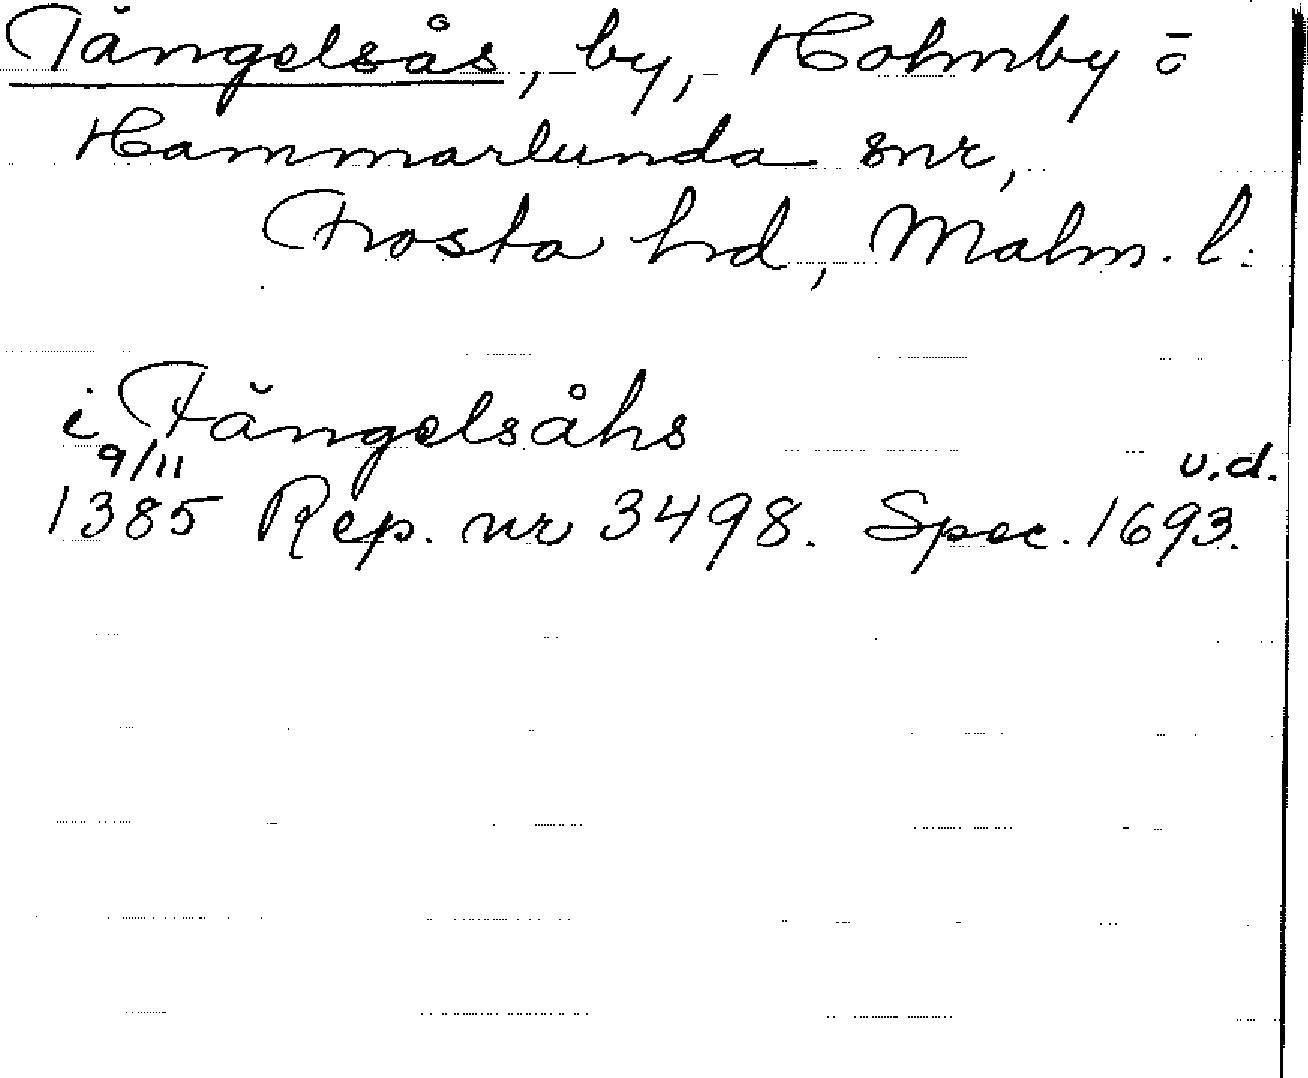 Tångelsås, by, Holmby ō
Hammarlunda snr,
Frosta hd, Malm. l.
i Tångelsåhs
9/11 u.d.
1385 Rep. nr 3498. Spec. 1693.